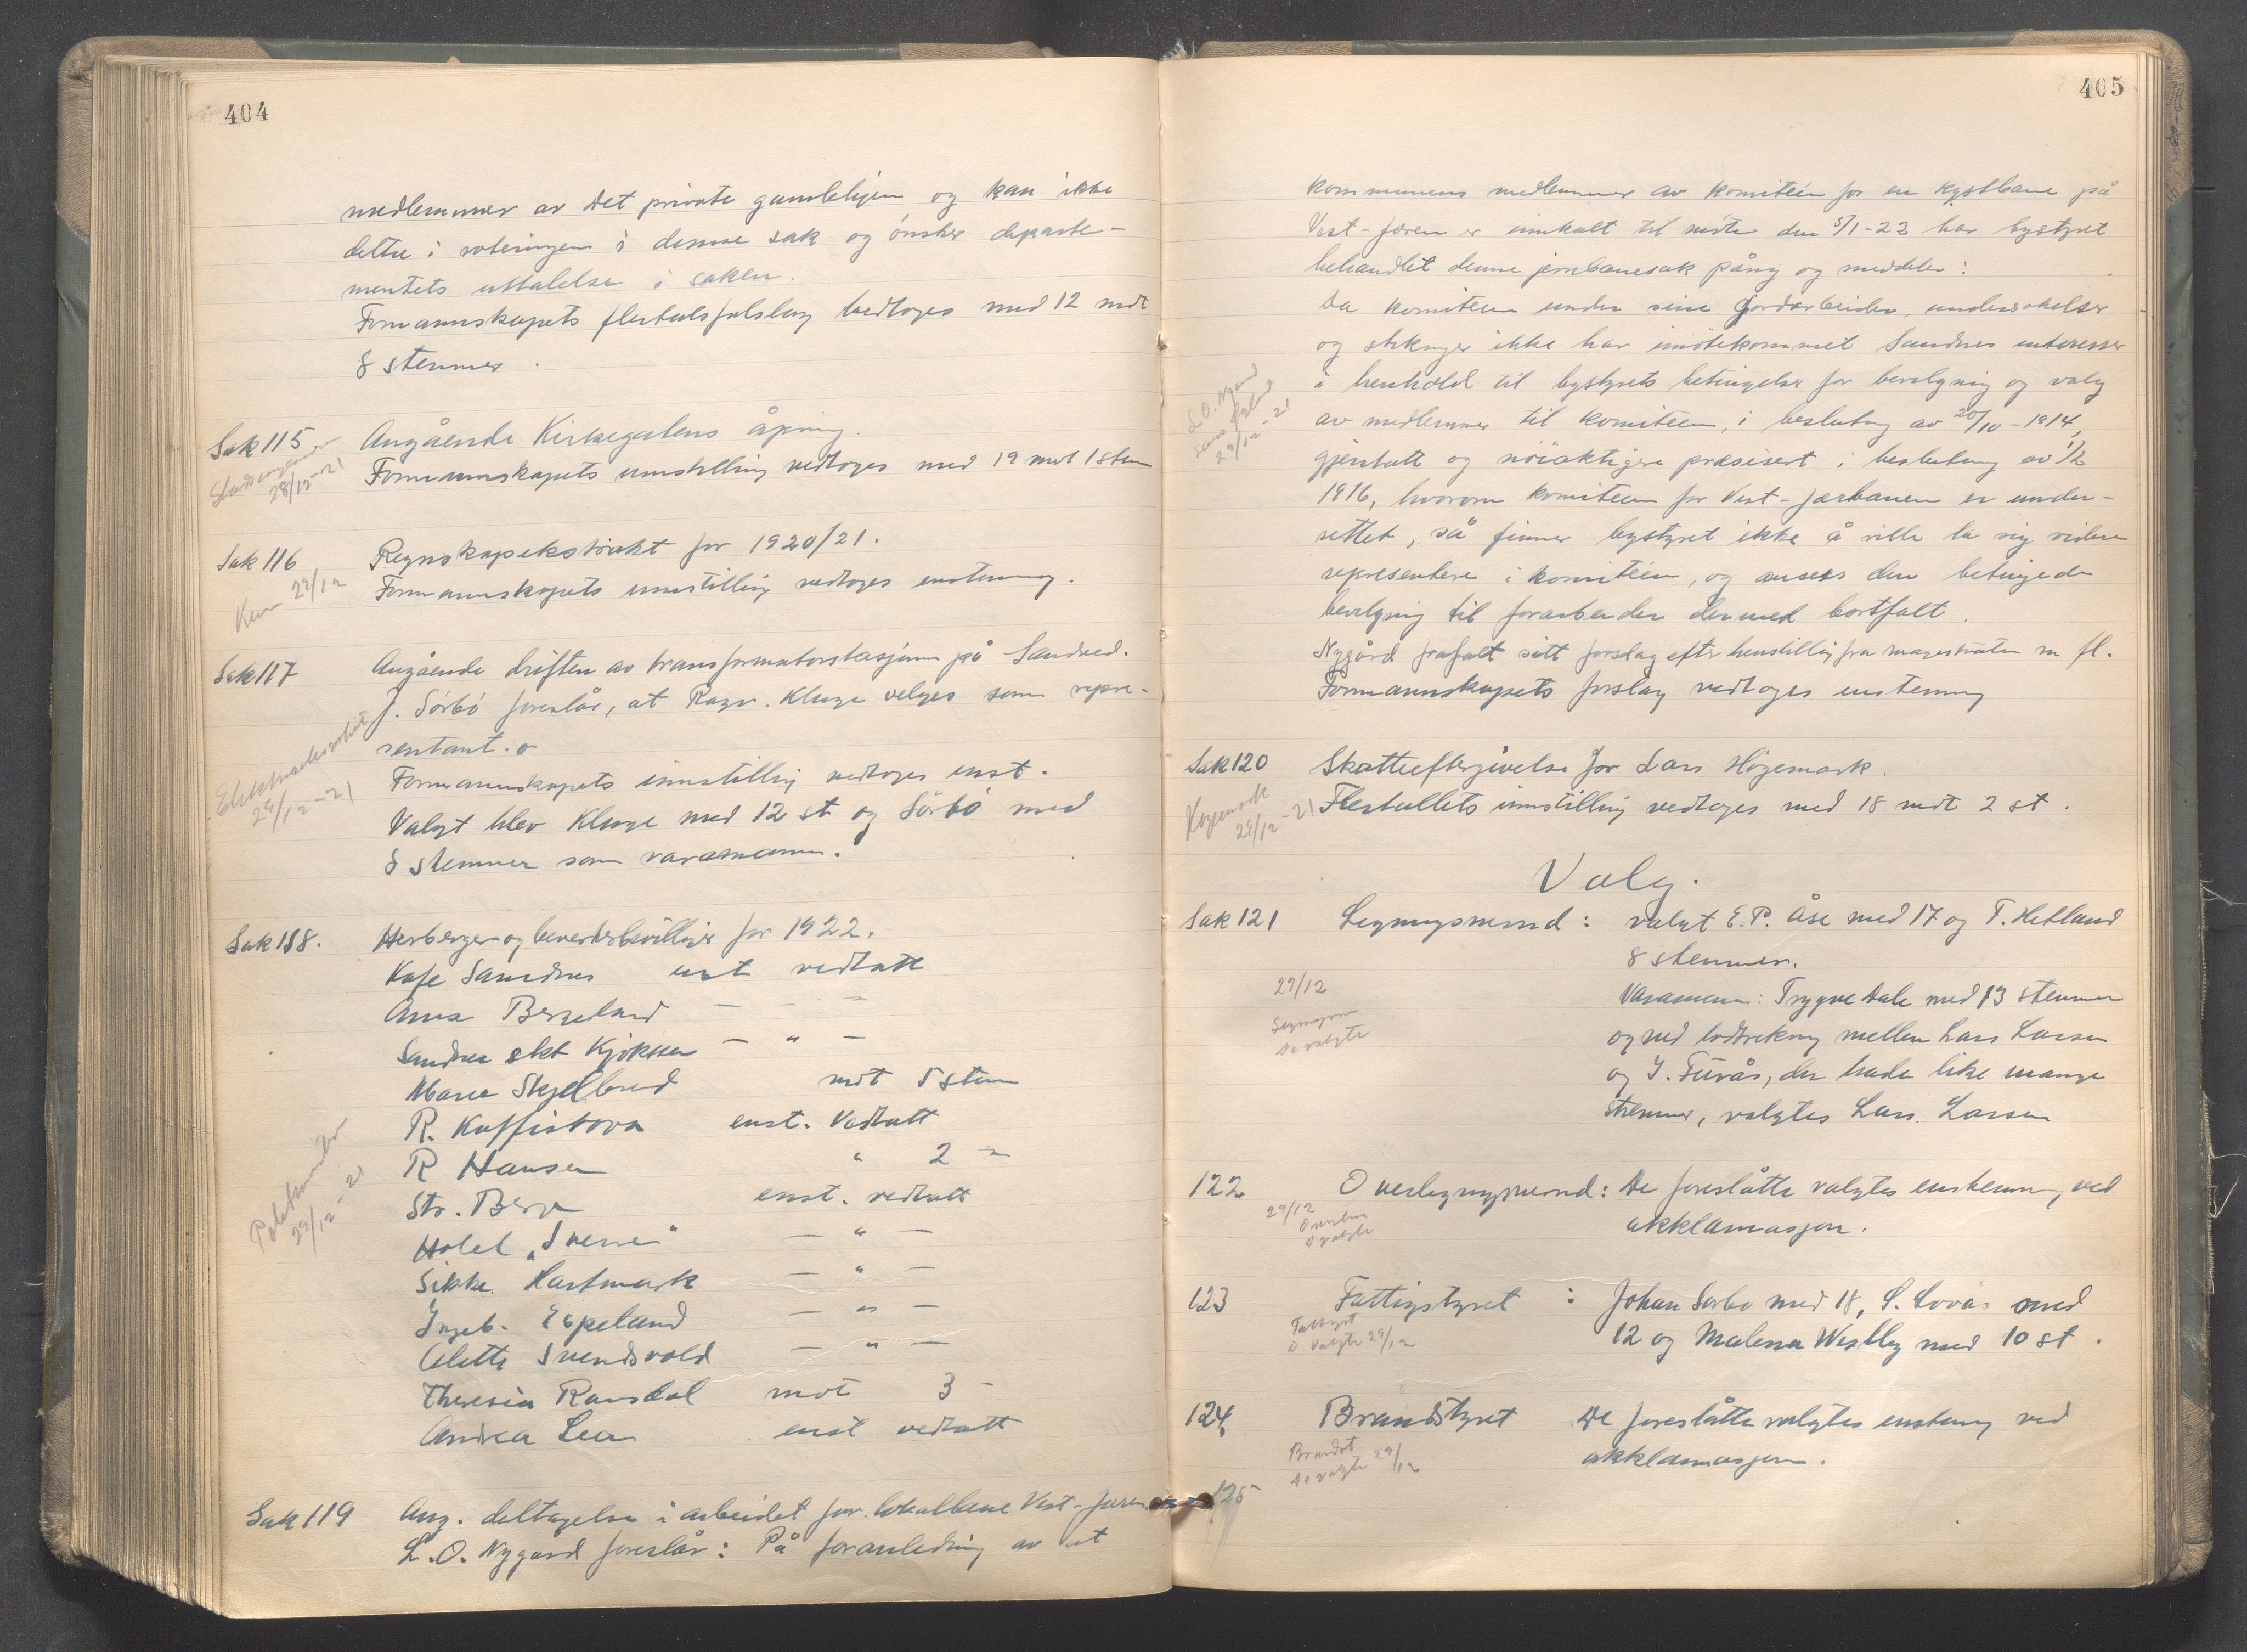 404
medlemmer av det private gamlehjem og kan ikke
delta i voteringen i denne sak og ønsker departe-
mentets uttalelse i saken.
Formannskapets flertalsforslag vedtoges med 12 mot
8 stemmer.
Sak 115 Angående Kirkegatens åpning.
28/12-21
Formannskapets innstilling vedtoges med 19 mot 1 stem
Sak 116 Regnskapsekstrakt for 1920/21.
29/12
Formannskapets innstilling vedtoges enstemmig.
Sak 117 Angående driften av transformatorstasjonen på Sandved.
J. Sörbö foreslår, at Ragv. Kluge velges som repre-
sentant.
29/12-21
Formannskapets innstilling vedtoges enst.
Valgt blev Kluge med 12 st og Sörbö med
8 stemmer som varamann.
Sak 118. Herberge og beverterbevillinger for 1922.
Kafe Sandnes enst vedtatt
Anna Bergeland — - —
Sandnes ekt Kjökken — " —
Marie Skjelbred mot 5 stem
R. Kaffistova enst. Vedtatt
R Hansen " 2 —
Str. Berg enst. vedtatt
Hotel „Svenn" — " —
Sikke Hartmark — " —
Ingeb. Espeland — " —
Alette Svendsvold — " —
Theresia Ramsdal mot 3 -
Andrea Lea enst vedtatt
29/12-21
Sak 119 Ang. deltagelse i arbeidet for lokalbane Vest-Jæren
L. O. Nygard foreslår: På foranledning av at
405
kommunens medlemmer av komiteén for en kystbane på
Vest-Jæren er innkalt til møte den 5/1-22 har bystyret
behandlet denne jernbanesak påny og meddeler:
Da komiteen under sine forarbeider, undersøkelser
og stikninger ikke har imøtekommet Sandnes interesser
i henhold til bystyrets betingelser for bevilgning og valg
av medlemmer til komiteen, i beslutning av 20/10-1914,
gjentatt og nöiaktigere præsisert i beslutning av 1/2
1916, hvorom komiteen for Vest-Jærbanen er under-
rettet, så finner bystyret ikke å ville la sig videre
representere i komiteén, og ansees den betingede
bevilgning til forarbeider dermed bortfalt.
Nygård frafalt sitt forslag efter henstilling fra magistraten m fl.
Formannskapets forslag vedtoges enstemmig
L. O. Nygård
29/12-21
Sak 120 Skatteeftergivelse for Lars Högemark.
Högemark
29/12-21
Flertallets innstilling vedtoges med 18 mot 2 st.
Valg.
Sak 121 Ligningsnemnd: valgt E. P. Åse med 17 og T. Hetland
8 stemmer.
29/12
Varamenn: Trygve Dale med 13 stemmer
og ved lodtrekning mellem Lars Larsen
de valgte
og J. Tüvås, der hadde like mange
stemmer, valgtes Lars Larsen
122 Overligningsnemnd: De foreslåtte valgtes enstemmig ved
akklamasjon.
29/12
123 Fattigstyret : Johan Sørbø med 18, S. Lovås med
12 og Malena Westby med 10 st.
Fattigst
D. valgte 29/12
124 Brandstyret De foreslåtte valgtes enstemmig ved
akklamasjon.
Brandst
De valgte 29/12
125